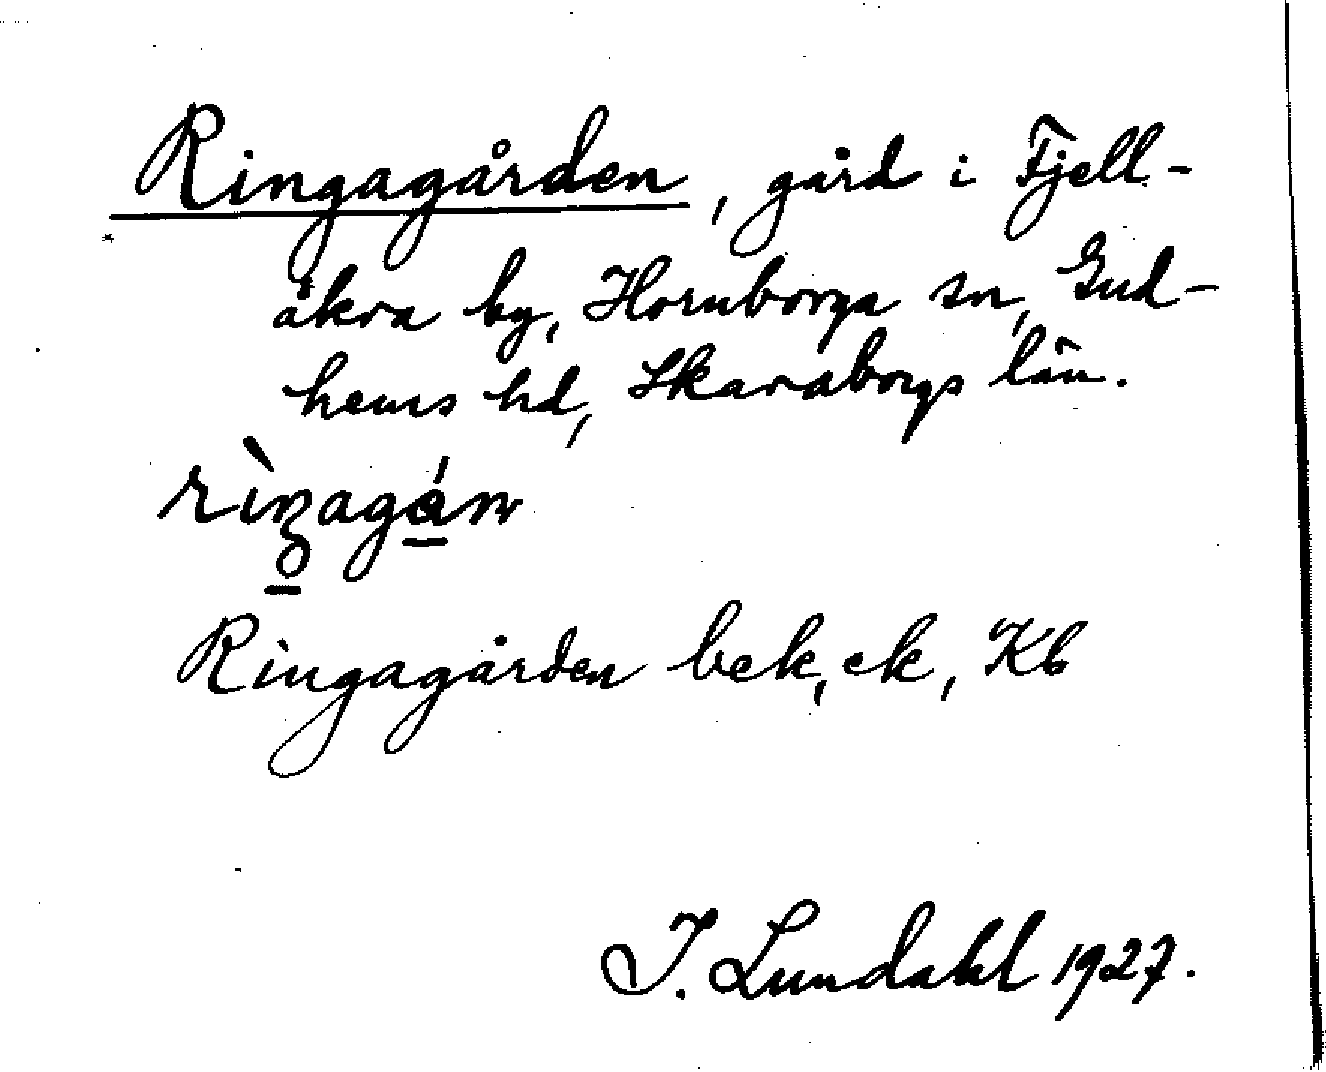 Ringagården, gård i Fjell-
åkra by, Hornborga sn, Gud-
hems hd, Skaraborgs län.
Ringagården bek, ek, Kb
I. Lundahl 1927.